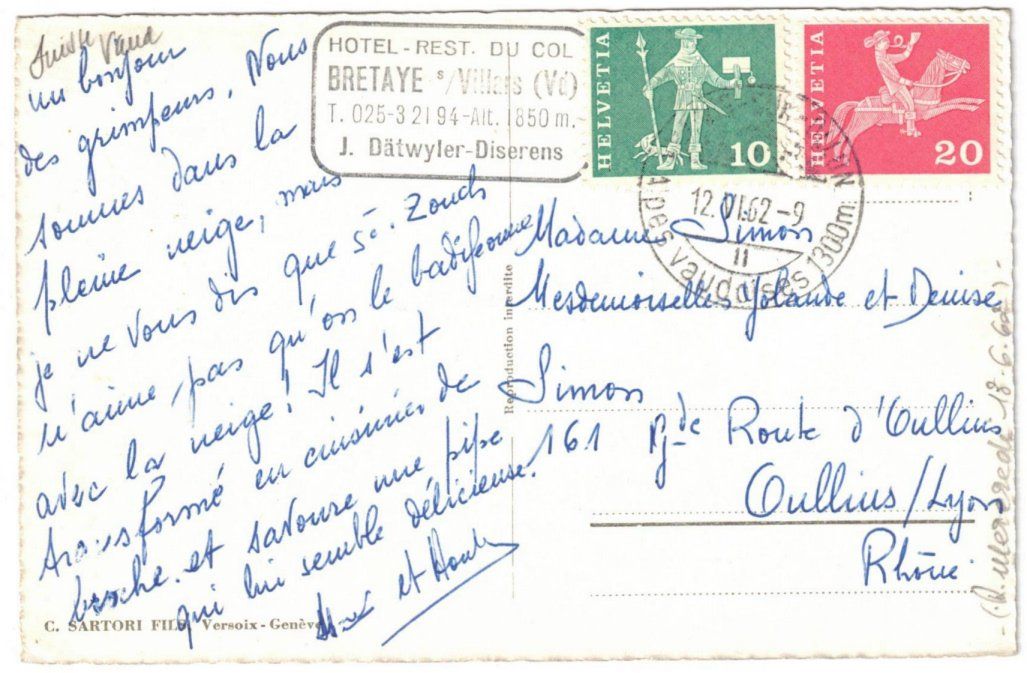 Suisse Vaud
un bonjour
des grimpeurs. Nous
sommes dans la
pleine neige, mais
je ne vous dis que
n'aime pas qu'on le badigeonne
avec la neige! Il s'est
transformé en cuisinier de
et savoure une pipe
qui lui semble délicieuse.
et
C. SARTORI FILS, Versoix - Genève
HOTEL - REST. DU COL
BRETAYE s/Villars (Vd)
T. 025-3 21 94 - Alt. 1850 m.-
J. Dätwyler-Diserens
HELVETIA
10
HELVETIA
20
12.VI.62-9
11
Alpes vaudoises 1300m.
Reproduction interdite
Madame Simon
Mesdemoiselles Yolande et Denise
Simon
161 Gde Route d'Oullins
Oullins/Lyon
Rhône
18.6.62